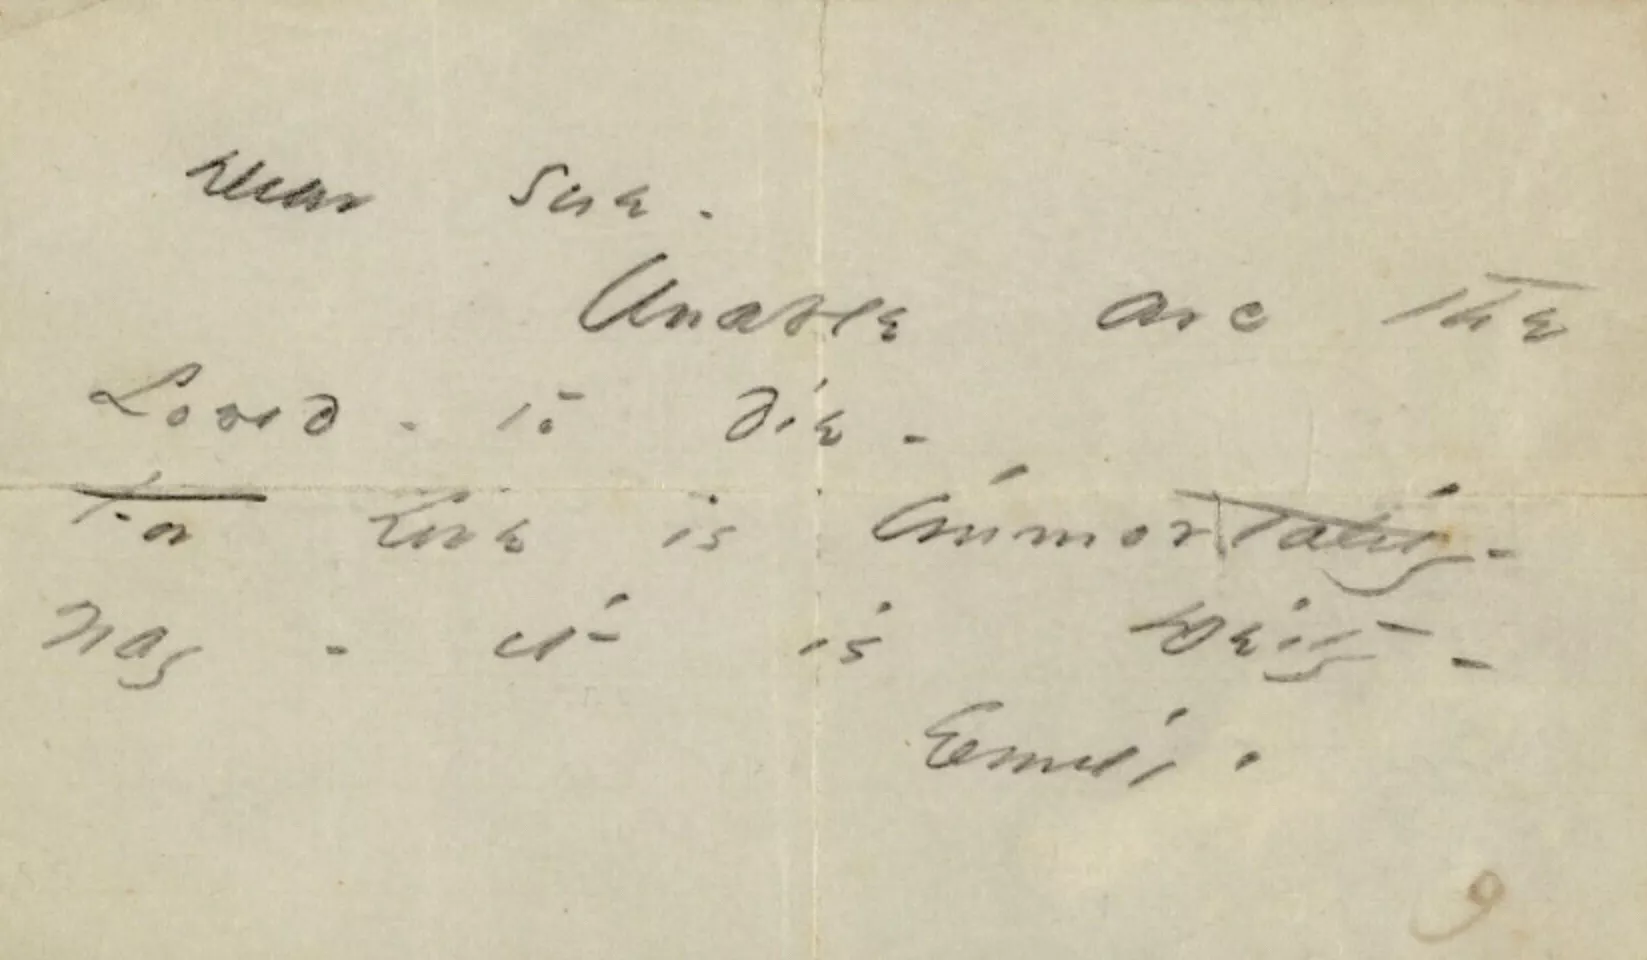 Dear Sue -
Unable are the
Loved - to die -
For Love is Immortality -
Nay - it is Deity -
Emily -
9